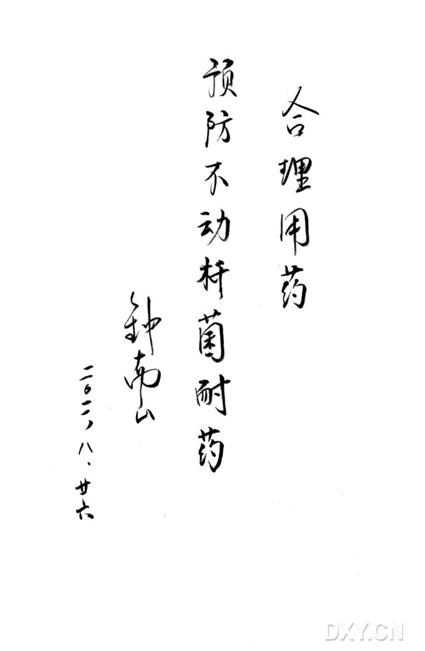 合理用药
预防不动杆菌耐药
钟南山
二〇一一、八、廿六
DXY.CN